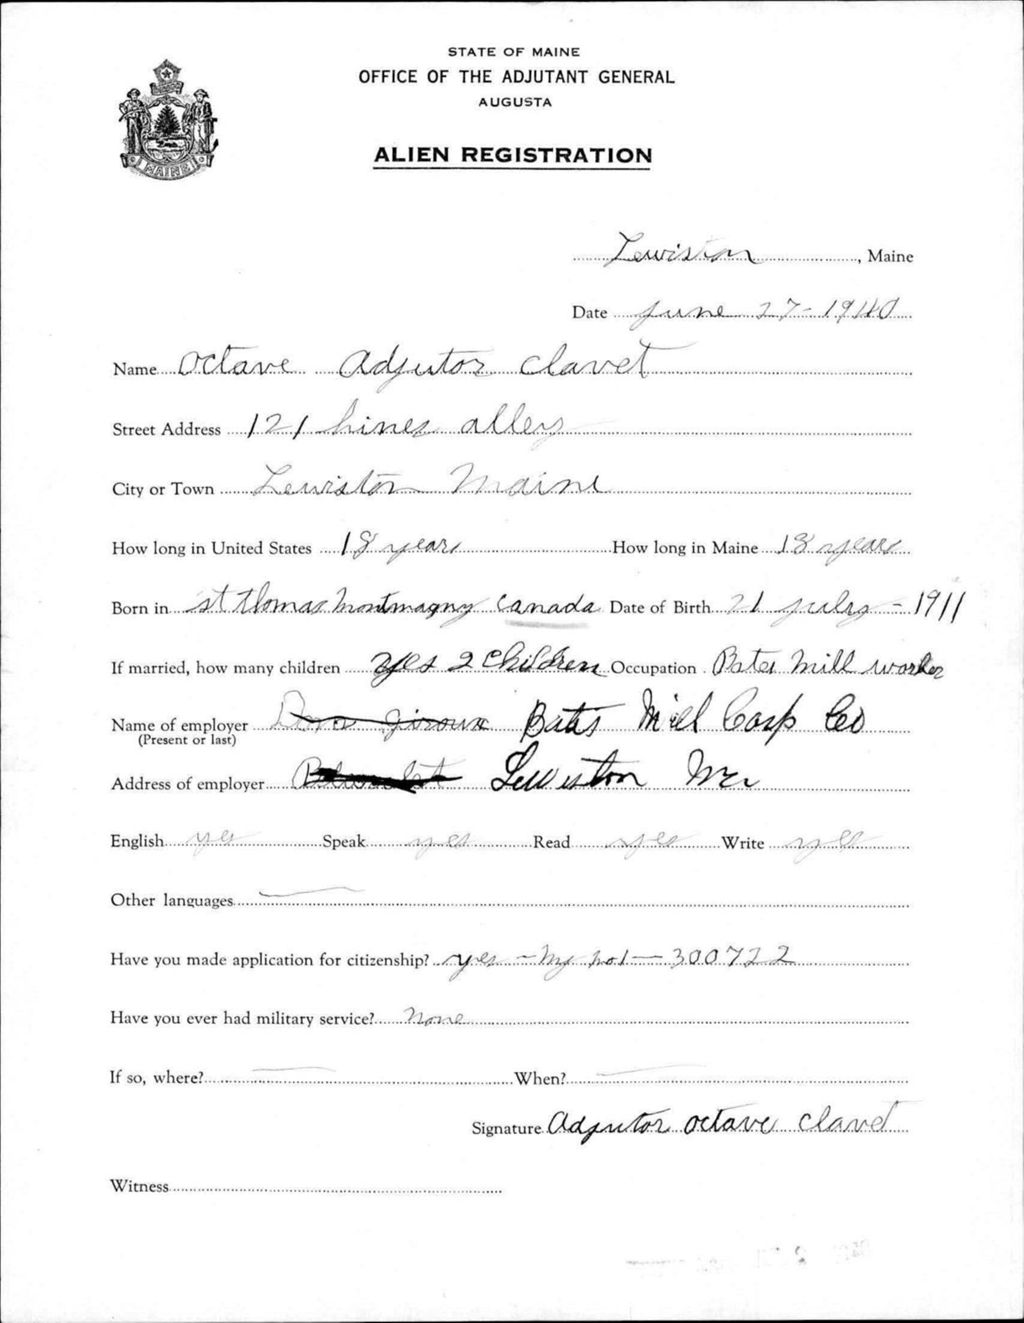 STATE OF MAINE
OFFICE OF THE ADJUTANT GENERAL
AUGUSTA
ALIEN REGISTRATION
MAINE
Lewiston, Maine
Date June 27 - 1940
Name Octave Adjutor Clavet
Street Address 121 hines alley
City or Town Lewiston Maine
How long in United States 18 years How long in Maine 18 years
Born in st thomas montmagny Canada Date of Birth 21 july - 1911
If married, how many children Yes 2 Children Occupation Bates Mill worker
Name of employer Dora Giroux Bates Mill Corp Co
(Present or last)
Address of employer Lewiston Me
English yes Speak yes Read yes Write yes
Other languages
Have you made application for citizenship? yes - My no 1 - 300722
Have you ever had military service? None
If so, where? When?
Signature Adjutor octave Clavet
Witness